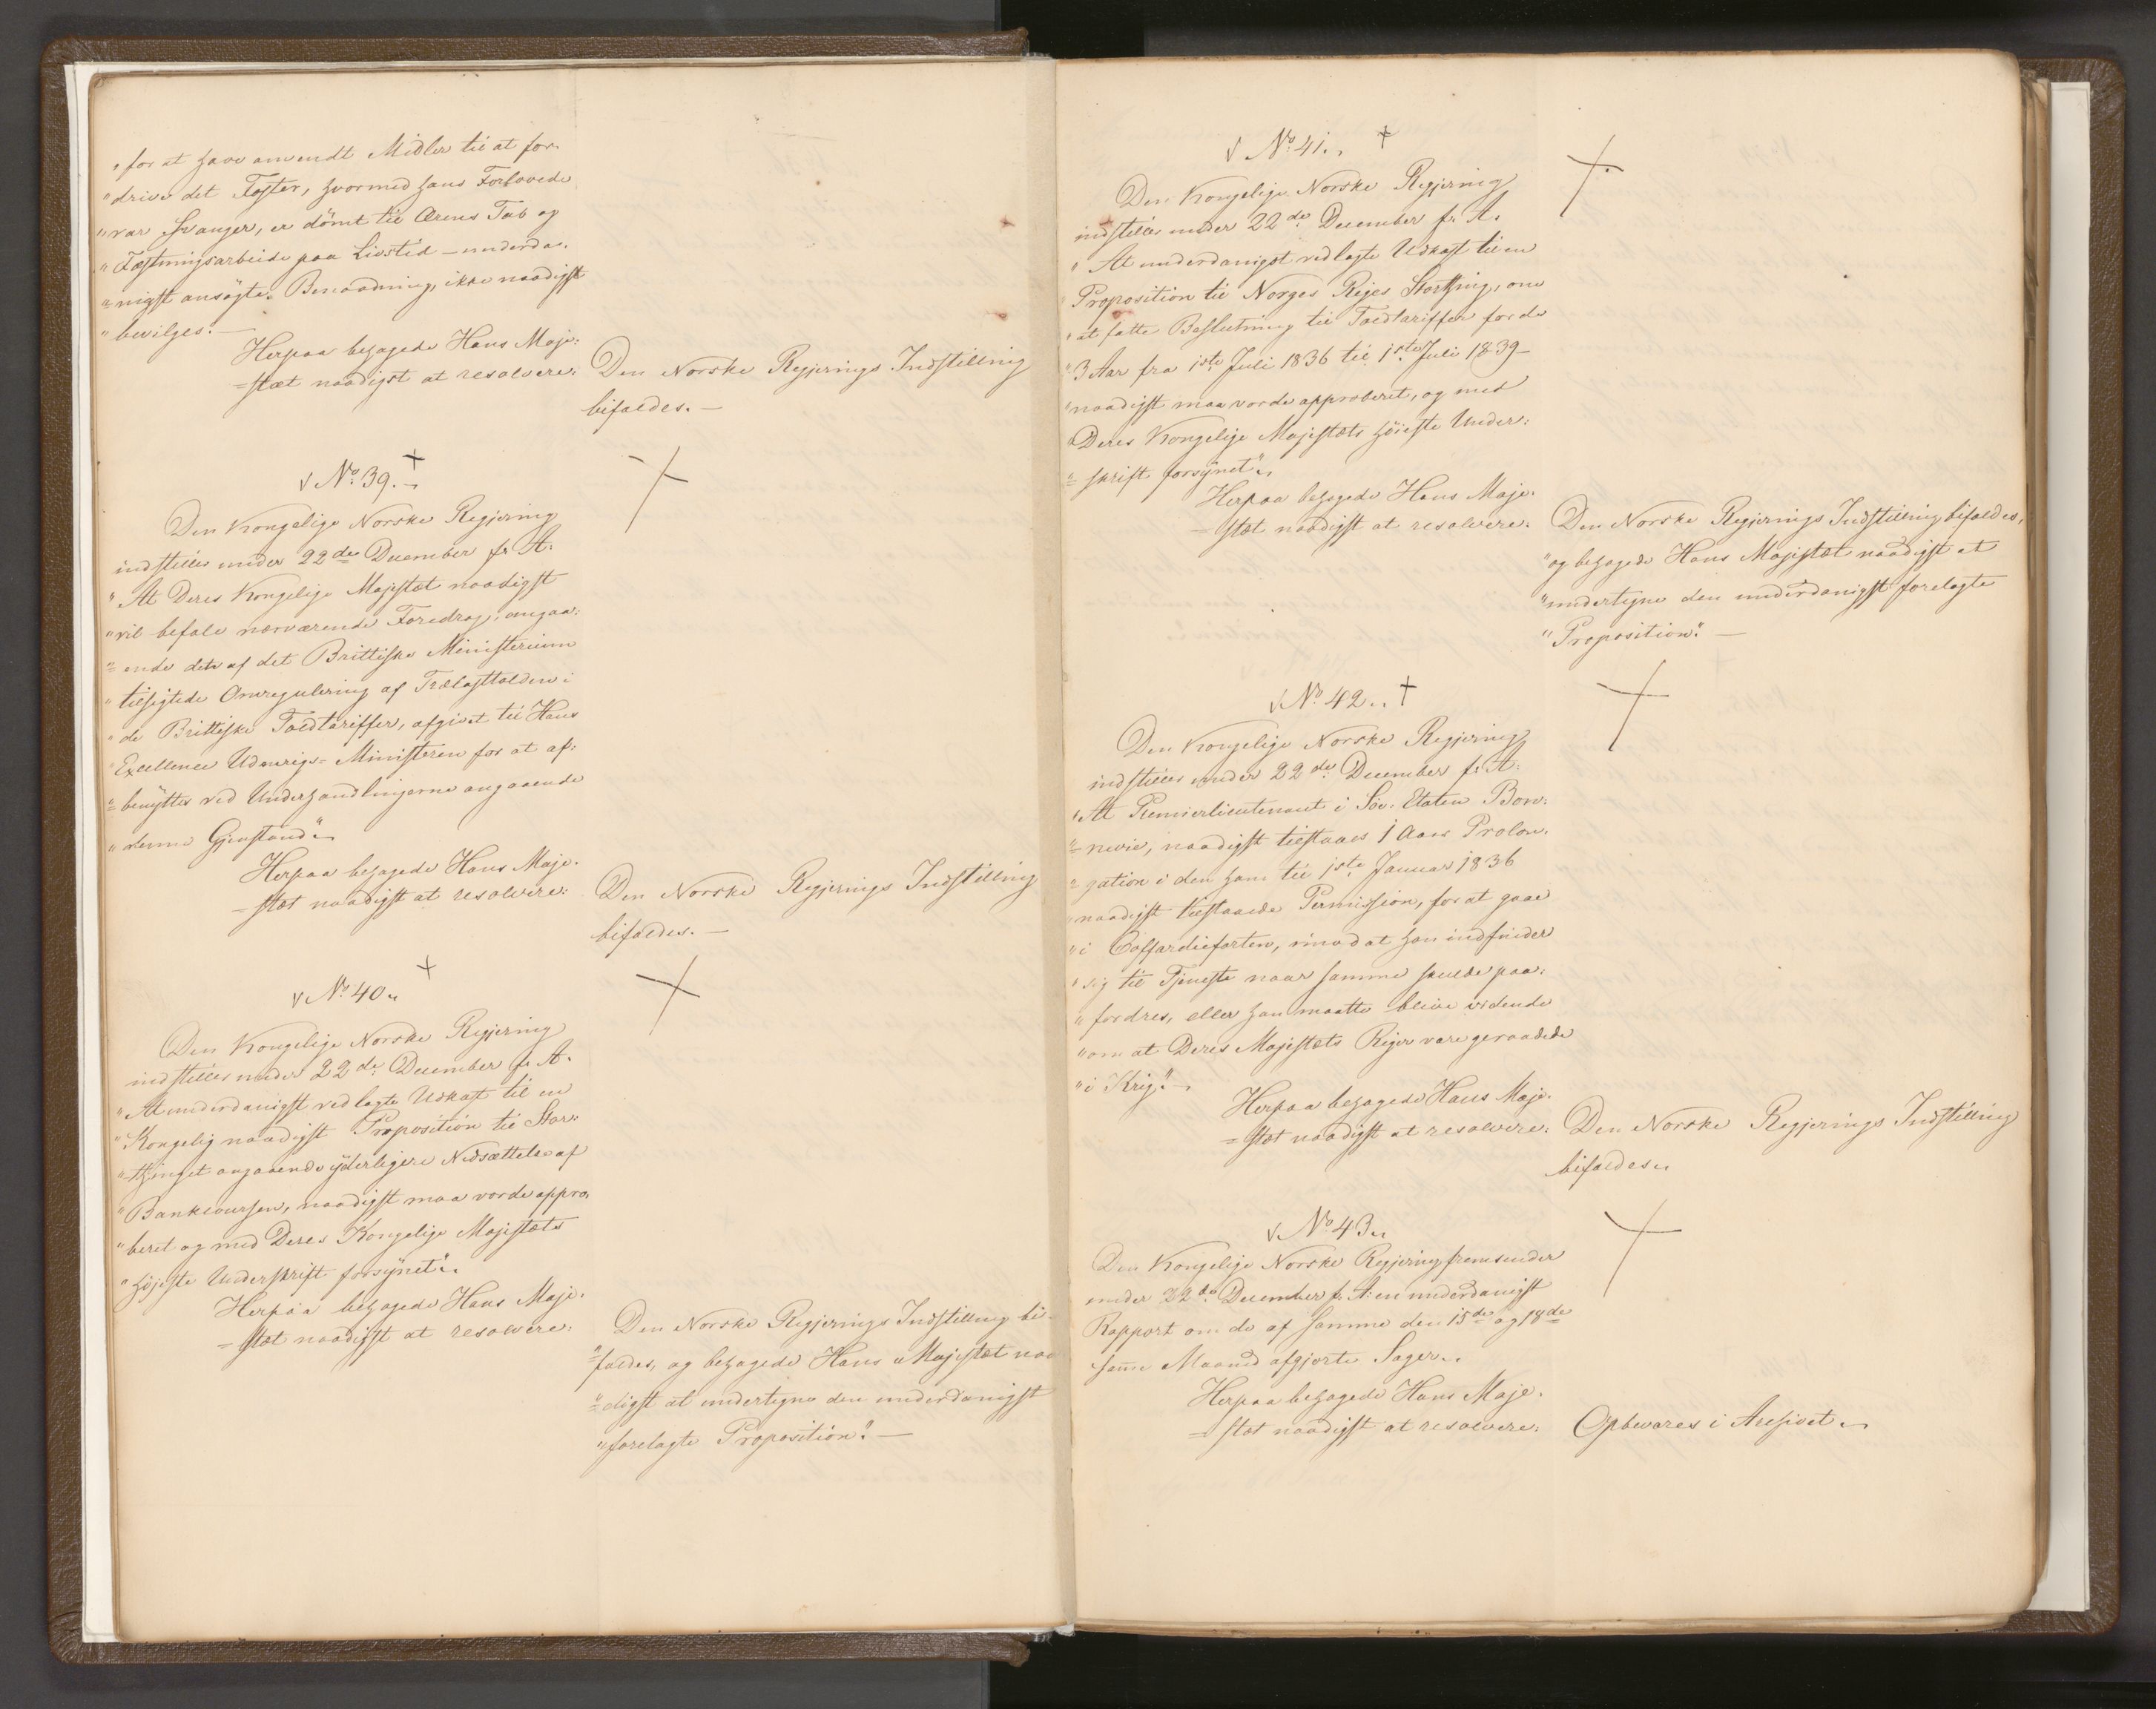 "for at have anvendt Midler til at for-
"drive det Foster, hvormed hans Forlovede
"var svanger, er dömt til Ærens Tab og
"Fæstningsarbeide paa Livstid – underda-
"nigst ansøgte Benaadning, ikke naadigst
"bevilges. –
Herpaa behagede Hans Maje-
=stæt naadigst at resolvere:
Den Norske Regjerings Indstilling
bifaldes. –
√ No. 39. +
Den Kongelige Norske Regjering
indstiller under 22de December f. A.
"At Deres Kongelige Majestæt naadigst
"vil befale nærværende Foredrag, angaa-
"ende den af det Brittiske Ministerium
"tilsigtede Omregulering af Trælasttolden i
"de Brittiske Toldtariffer, afgivet til Hans
"Excellence Udenrigs-Ministeren for at af-
"benyttes ved Underhandlingerne angaaende
"denne Gjenstand".
Herpaa behagede Hans Maje-
=stæt naadigst at resolvere:
Den Norske Regjerings Indstilling
bifaldes. –
√ No. 40. +
Den Kongelige Norske Regjering
indstiller under 22de December f. A.
"At underdanigst vedlagte Udkast til en
"Kongelig naadigst Proposition til Stor-
"thinget angaaende yderligere Nedsættelse af
"Bankcoursen, naadigst maa vorde appro-
"beret og med Deres Kongelige Majestæts
"højeste Underskrift forsynet".
Herpaa behagede Hans Maje-
=stæt naadigst at resolvere:
Den Norske Regjerings Indstilling bi-
"faldes, og behagede Hans Majestæt naa
"digst at undertegne den underdanigst
"forelagte Proposition". –
√ No. 41. +
Den Kongelige Norske Regjering
indstiller under 22de December f. A.
"At underdanigst vedlagte Udkast til en
"Proposition til Norges Riges Storthing, om
"at fatte Beslutning til Toldtariffer for de
"3 Aar fra 1ste Juli 1836 til 1ste Juli 1839 –
"naadigst maa vorde approberet, og med
"Deres Kongelige Majestæts höieste Under-
"skrift forsynet".
Herpaa behagede Hans Maje-
=stæt naadigst at resolvere:
Den Norske Regjerings Indstilling bifaldes,
"og behagede Hans Majestæt naadigst at
"undertegne den underdanigst forelagte
"Proposition". –
√ No. 42. +
Den Kongelige Norske Regjering
indstiller under 22de December f. A.
"At Premierlieutenant i Söe-Etaten Bon-
"nevie, naadigst tilstaaes 1 Aars Prolon-
"gation i den ham til 1ste Januar 1836
"naadigst tilstaaede Permission, for at gaae
"i Coffardiefarten, imod at han indfinder
"sig til Tjeneste naar samme skulde paa-
"fordres, eller han maatte blive vidende
"om at Deres Majestæts Riger vare geraadede
"i Krig". –
Herpaa behagede Hans Maje-
=stæt naadigst at resolvere:
Den Norske Regjerings Indstilling
bifaldes.
√ No. 43.
Den Kongelige Norske Regjering fremsender
under 22de December f. A. en underdanigst
Rapport om de af samme den 15de og 18de
samme Maaned afgjorte Sager.
Herpaa behagede Hans Maje-
=stæt naadigst at resolvere:
Opbevares i Archivet.